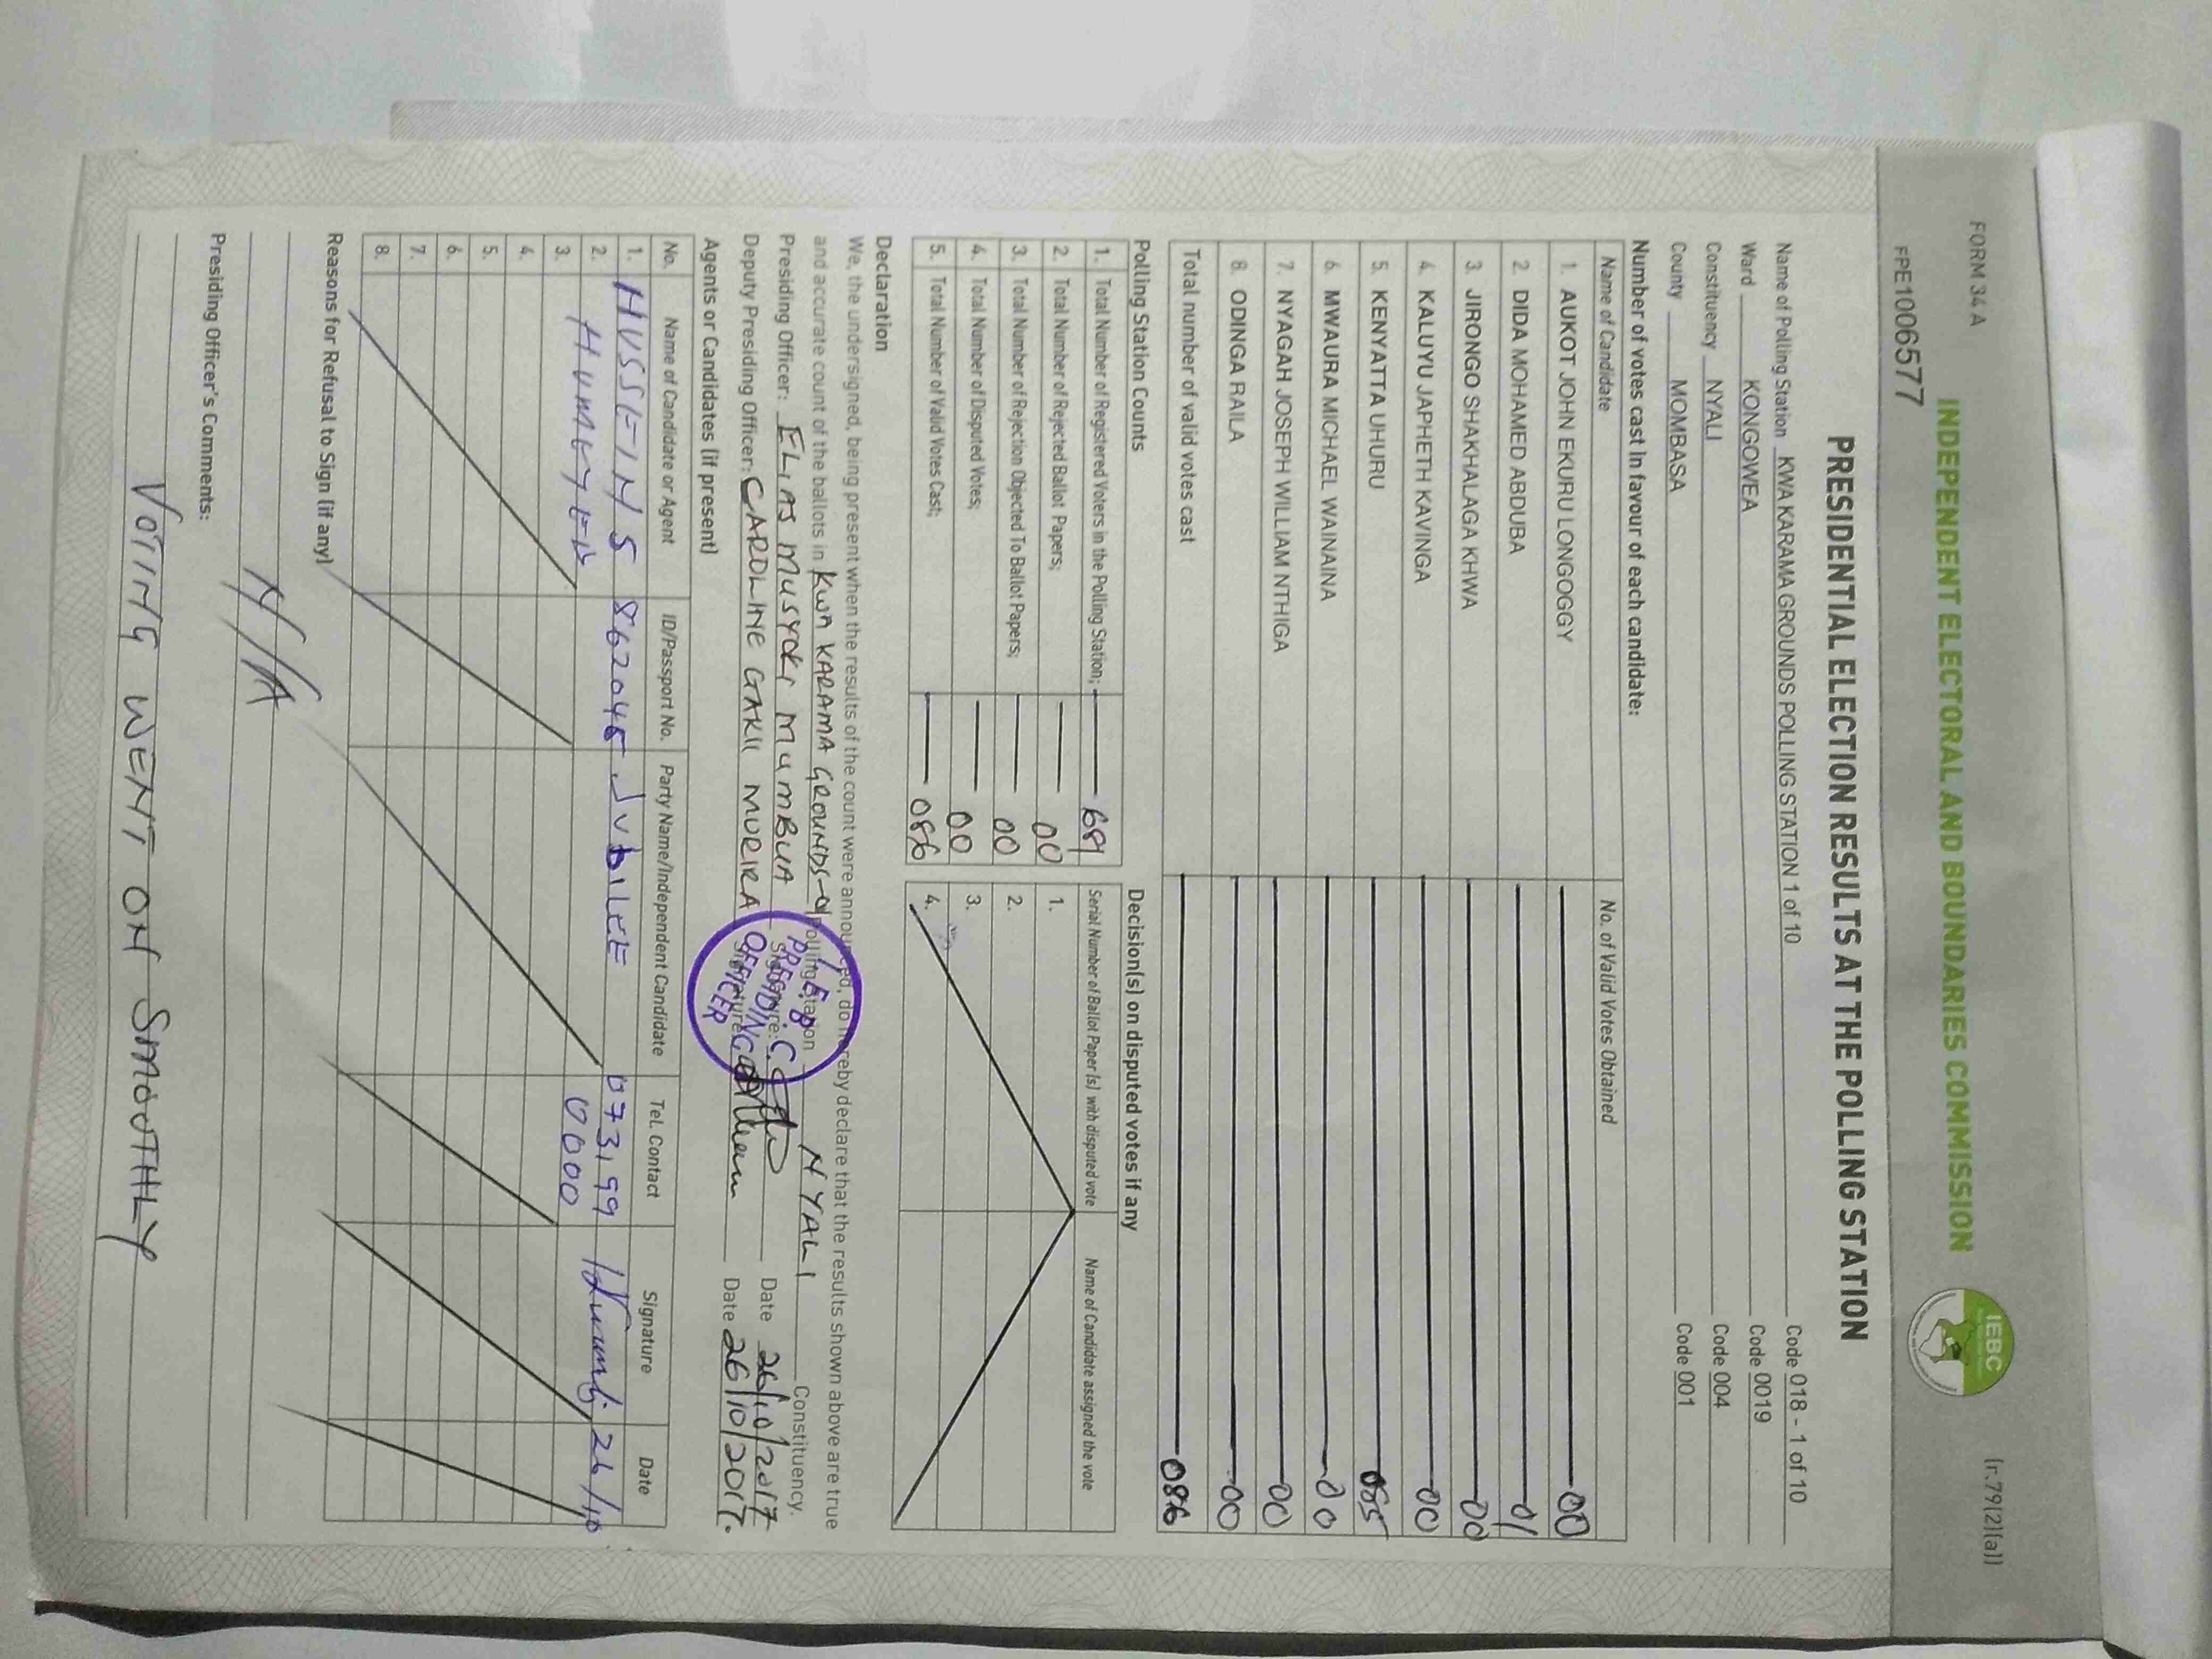 FORM 34 A
(r.79(2)(a))
INDEPENDENT ELECTORAL AND BOUNDARIES COMMISSION
IEBC
FPE1006577
PRESIDENTIAL ELECTION RESULTS AT THE POLLING STATION
Name of Polling Station KWA KARAMA GROUNDS POLLING STATION 1 of 10 Code 018 - 1 of 10
Ward KONGOWEA Code 0019
Constituency NYALI Code 004
County MOMBASA Code 001
Number of votes cast in favour of each candidate:
Name of Candidate No. of Valid Votes Obtained
1. AUKOT JOHN EKURU LONGOGGY 00
2. DIDA MOHAMED ABDUBA 01
3. JIRONGO SHAKHALAGA KHWA 00
4. KALUYU JAPHETH KAVINGA 00
5. KENYATTA UHURU 085
6. MWAURA MICHAEL WAINAINA 00
7. NYAGAH JOSEPH WILLIAM NTHIGA 00
8. ODINGA RAILA 00
Total number of valid votes cast 086
Polling Station Counts
1. Total Number of Registered Voters in the Polling Station; 689
2. Total Number of Rejected Ballot Papers; 00
3. Total Number of Rejection Objected To Ballot Papers; 00
4. Total Number of Disputed Votes; 00
5. Total Number of Valid Votes Cast; 086
Decision(s) on disputed votes if any
Serial Number of Ballot Paper (s) with disputed vote Name of Candidate assigned the vote
1.
2.
3.
4.
Declaration
We, the undersigned, being present when the results of the count were announced, do hereby declare that the results shown above are true
and accurate count of the ballots in KWA KARAMA GROUNDS-01 Polling Station NYALI Constituency.
Presiding Officer: ELIAS MUSYOKI MUMBUA Signature: Date 26/10/2017
Deputy Presiding Officer: CAROLINE GAKII MURIRA Signature: Date 26/10/2017.
I.E.B.C.
PRESIDING
OFFICER
Agents or Candidates (if present)
No. Name of Candidate or Agent ID/Passport No. Party Name/Independent Candidate Tel. Contact Signature Date
1. HUSSEIN S JUBILEE 073199 26/10
2. 0000
3.
4.
5.
6.
7.
8.
Reasons for Refusal to Sign (if any)
N/A
Presiding Officer's Comments:
VOTING WENT ON SMOOTHLY